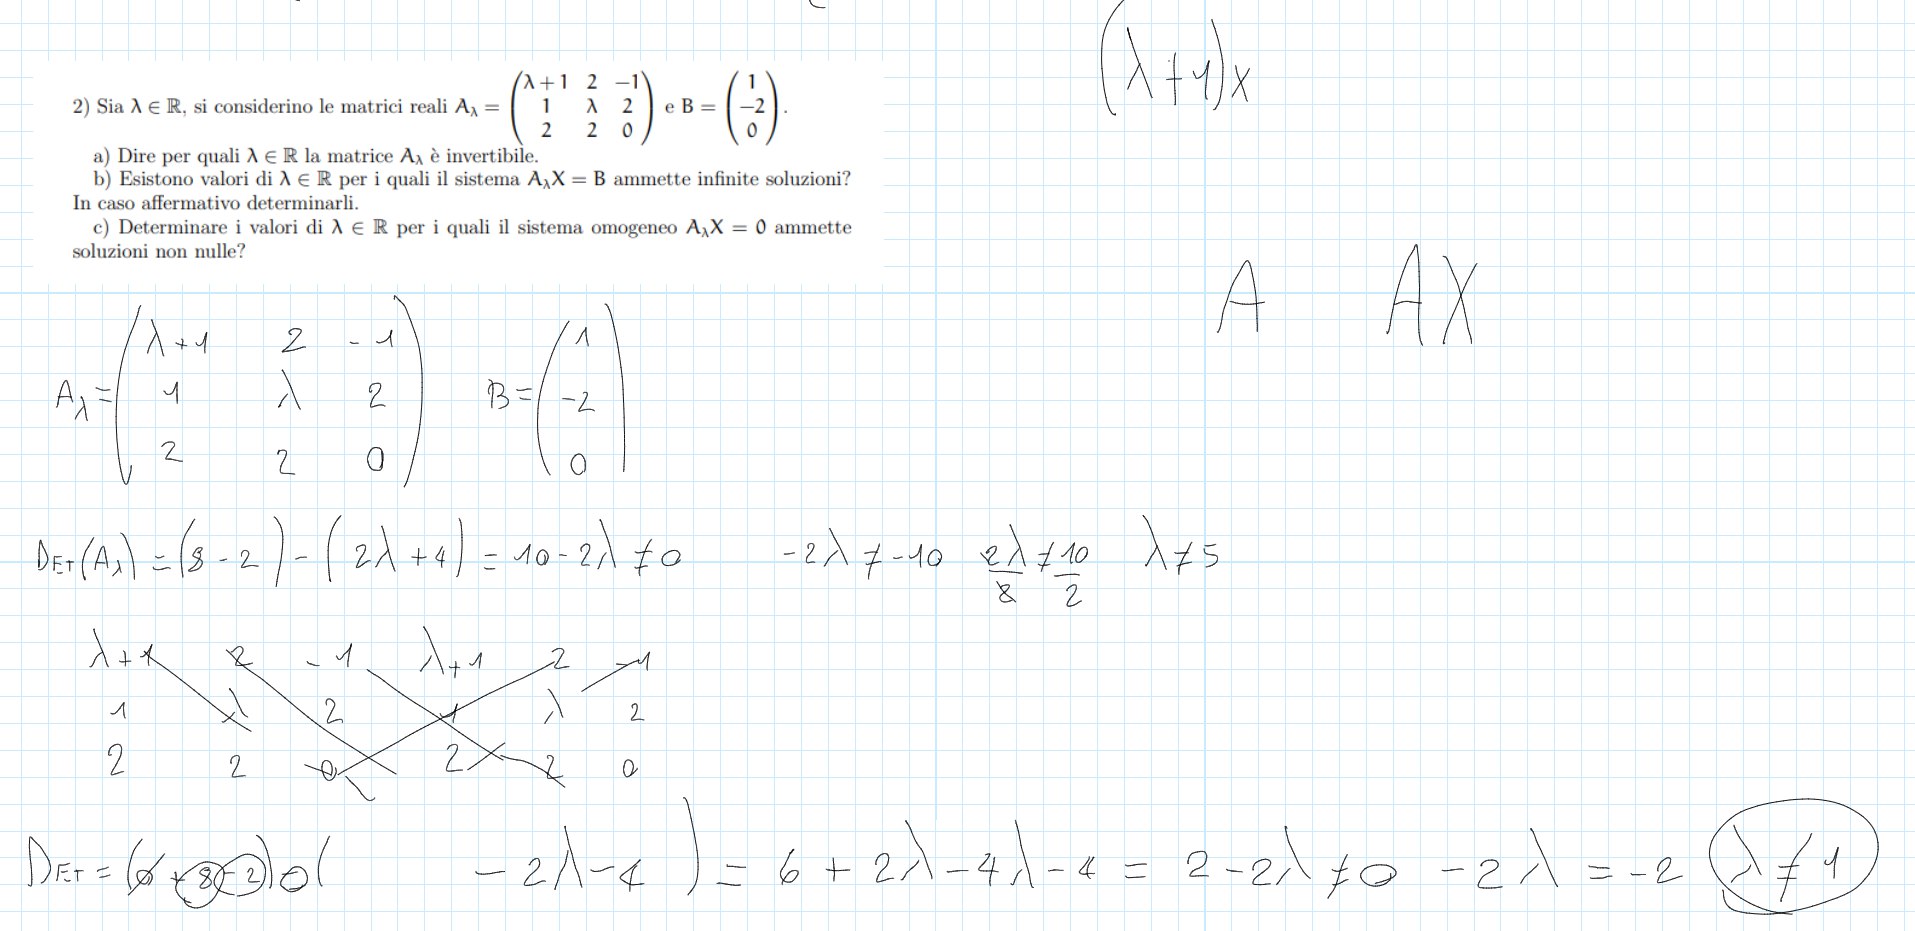 (λ+1)x
2) Sia λ ∈ ℝ, si considerino le matrici reali A_λ = (λ+1 2 −1; 1 λ 2; 2 2 0) e B = (1; −2; 0).
a) Dire per quali λ ∈ ℝ la matrice A_λ è invertibile.
b) Esistono valori di λ ∈ ℝ per i quali il sistema A_λX = B ammette infinite soluzioni?
In caso affermativo determinarli.
c) Determinare i valori di λ ∈ ℝ per i quali il sistema omogeneo A_λX = 0 ammette
soluzioni non nulle?
A AX
λ+1 2 -1 1
A_λ = 1 λ 2 B = -2
2 2 0 0
DET(A_λ) = (8-2) - (2λ+4) = 10-2λ ≠ 0 -2λ ≠ -10 2λ/2 ≠ 10/2 λ ≠ 5
λ+1 2 -1 λ+1 2 -1
1 λ 2 1 λ 2
2 2 0 2 2 0
DET = (0+8-2) - ( -2λ-4) = 6+2λ-4λ-4 = 2-2λ ≠ 0 -2λ = -2 λ ≠ 1